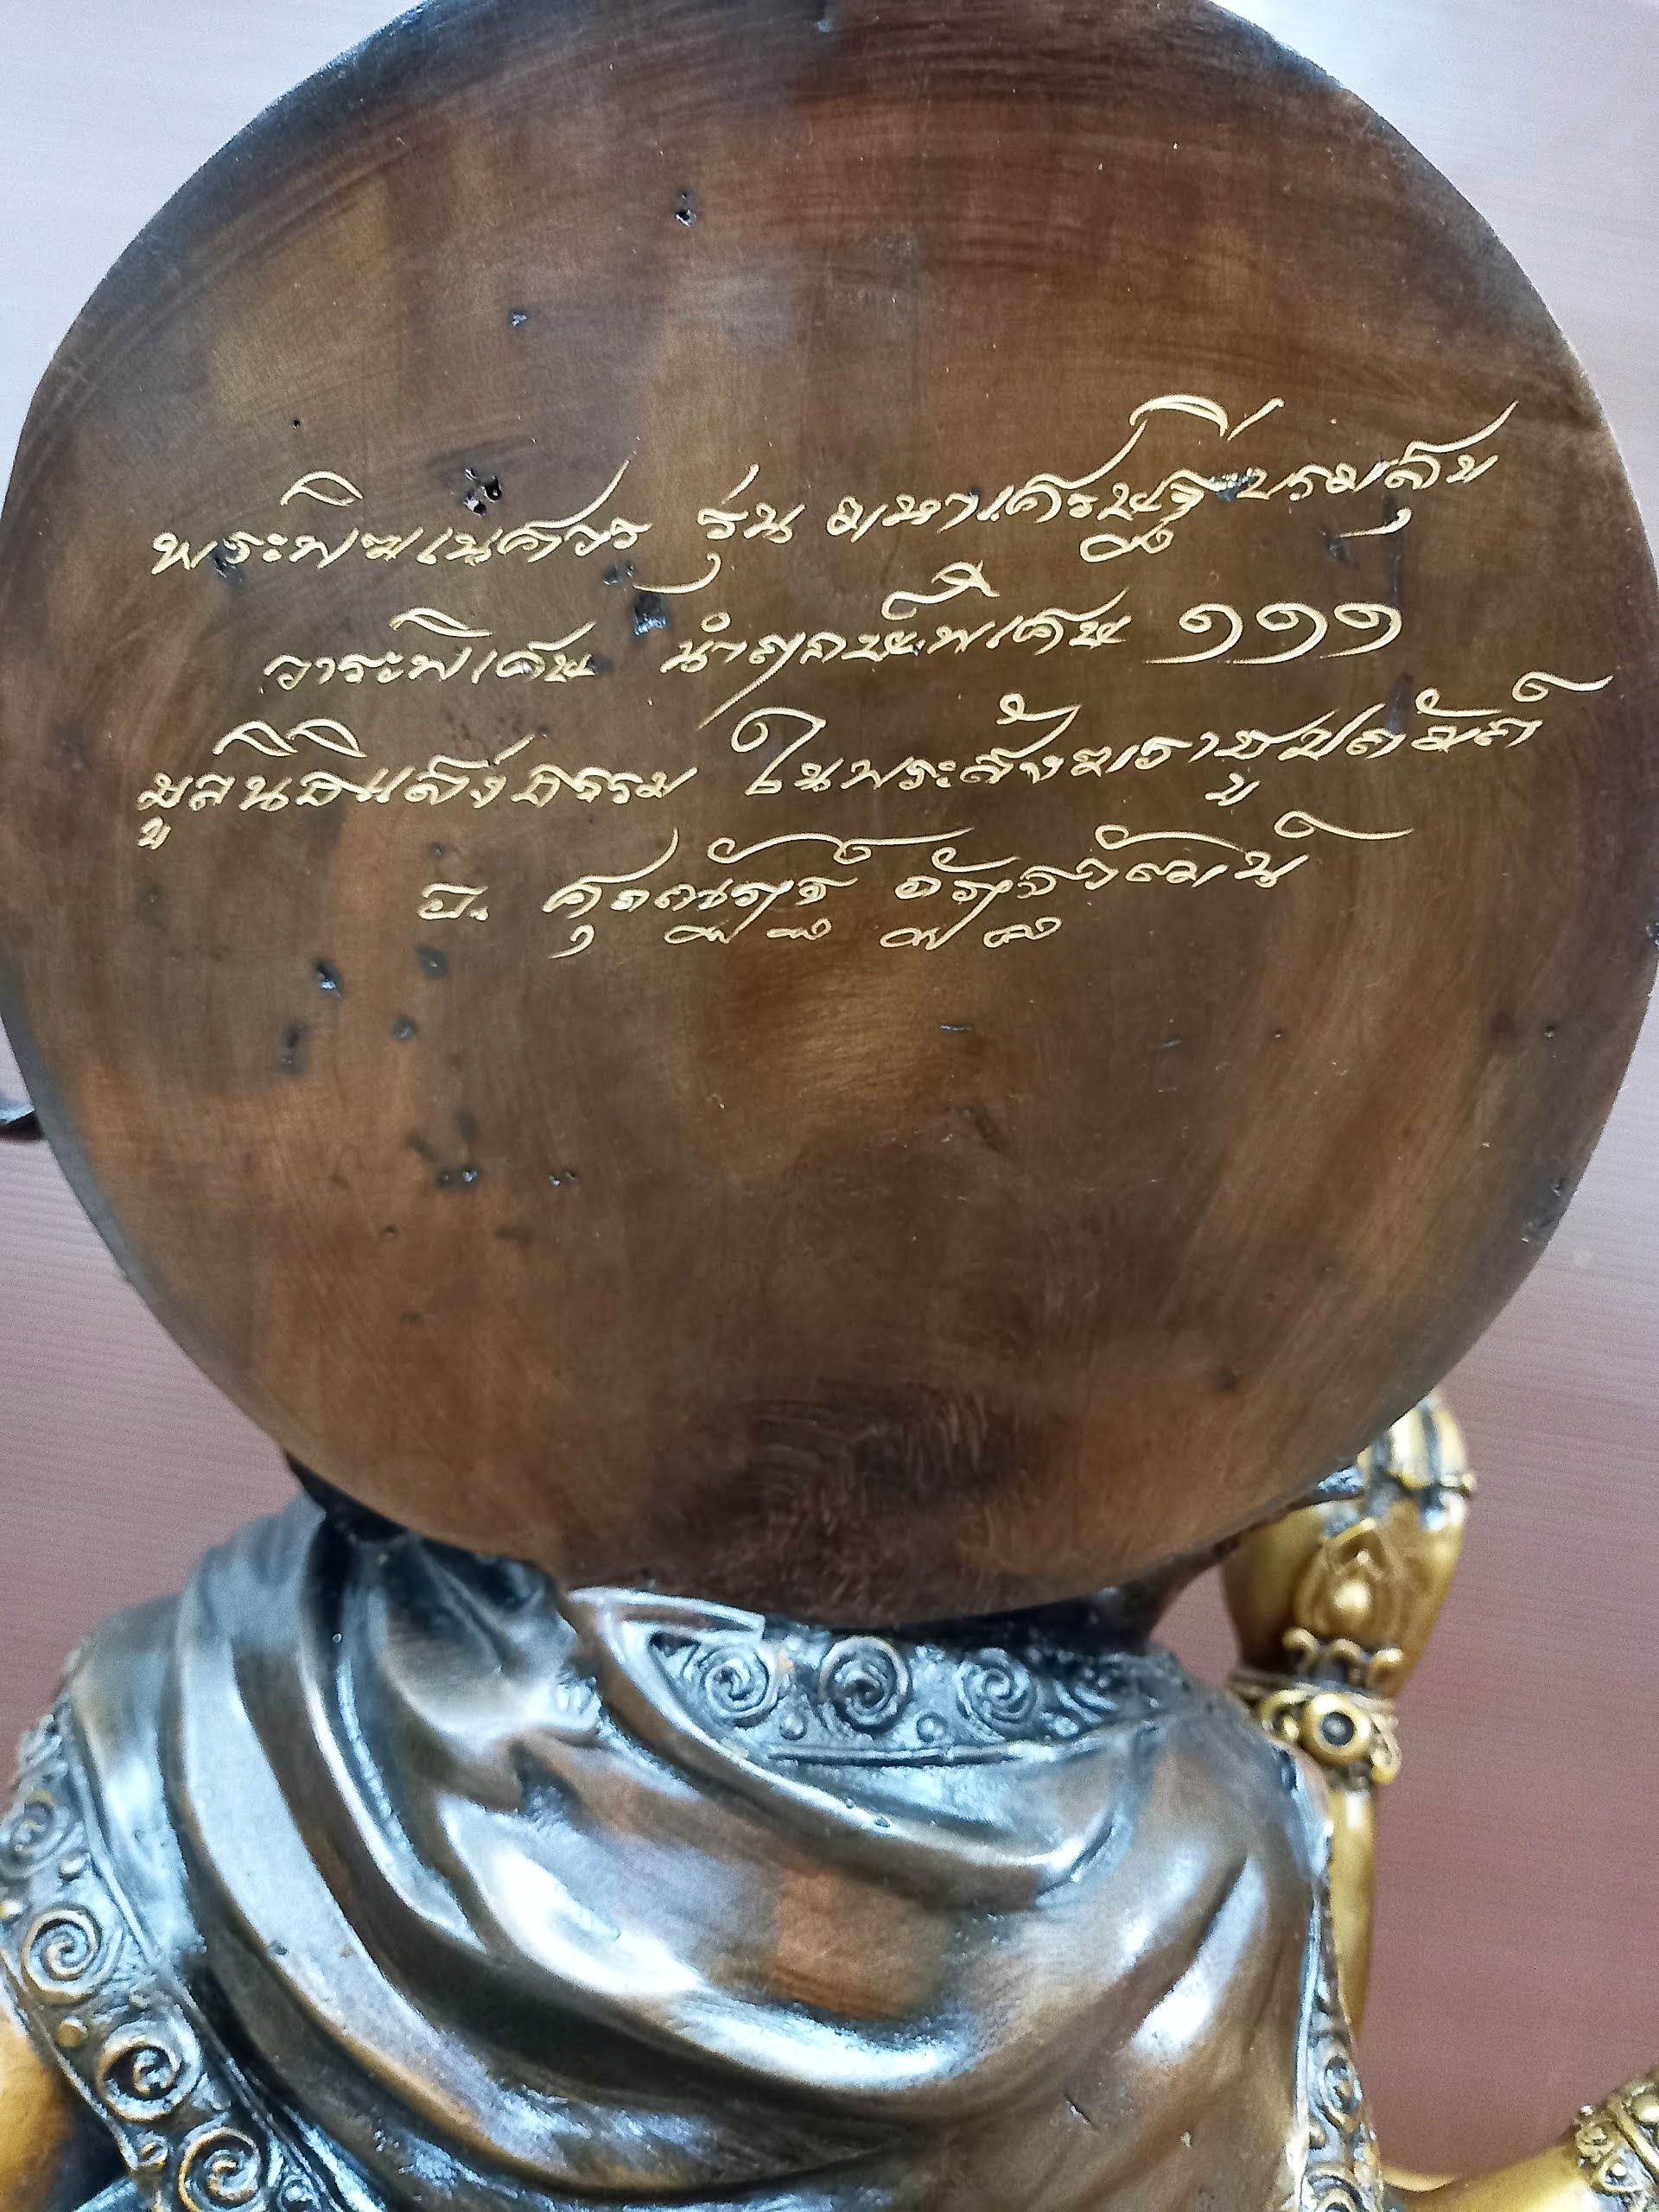 พระพิฆเนศวร รุ่น มหาเศรษฐีบรมสุข
วาระพิเศษ นำฤกษ์พิเศษ ๑๑๑
มูลนิธิแสงธรรม ในพระสังฆราชูปถัมภ์
อ.